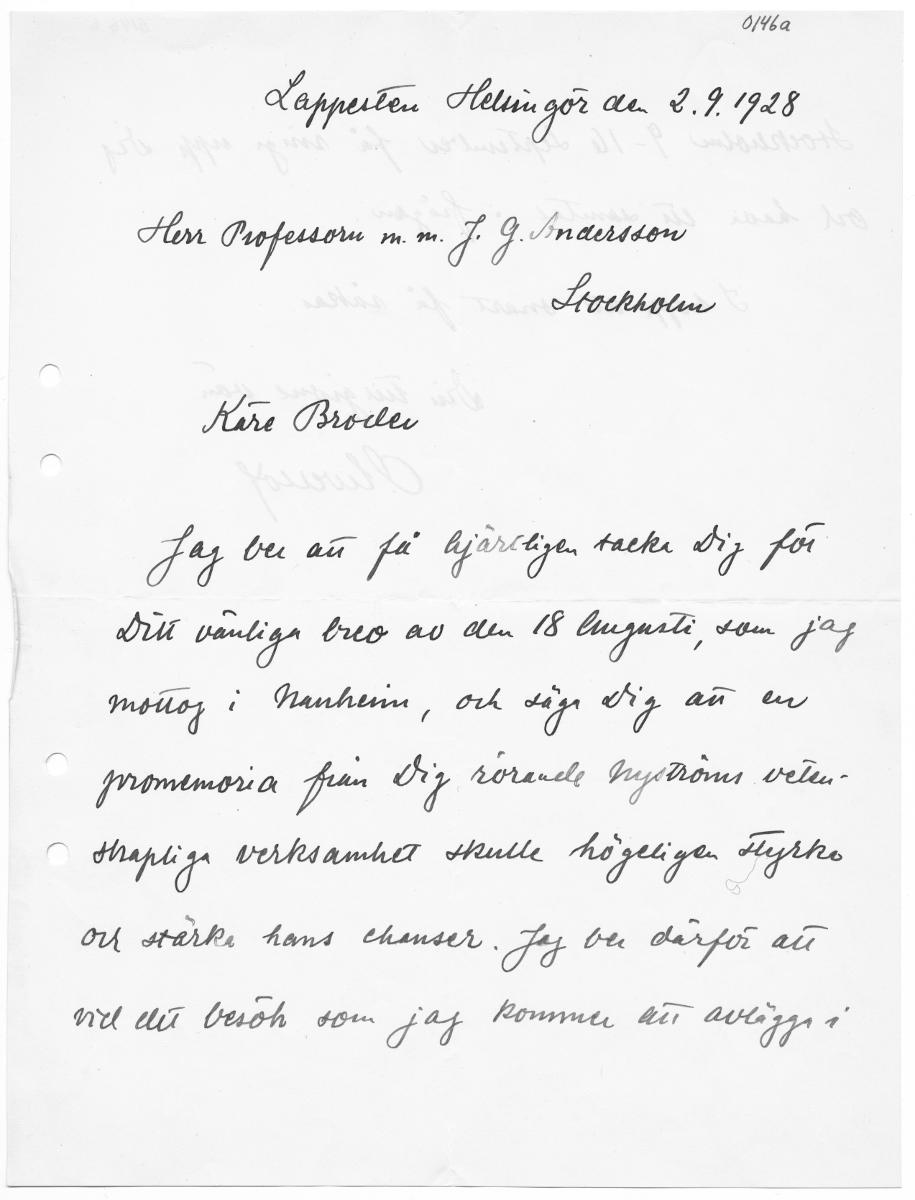 0146a
Lappesten Helsingör den 2.9.1928
Herr Professorn m.m. J. G. Andersson
Stockholm
Käre Broder
Jag ber att få hjärtligen tacka Dig för
Ditt vänliga brev av den 18 Augusti, som jag
mottog i Nauheim, och säga Dig att en
promemoria från Dig rörande Nyströms veten-
skapliga verksamhet skulle högeligen styrka
och stärka hans chanser. Jag ber därför att
vid det besök som jag kommer att avlägga i